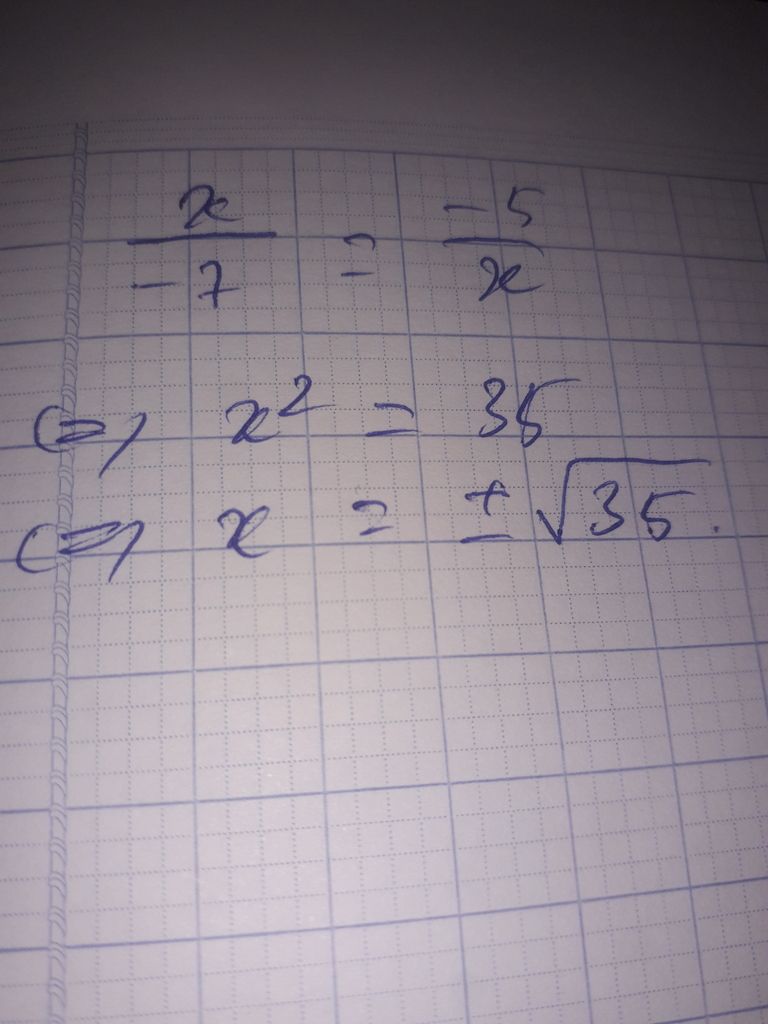 x/-7 = -5/x
<=> x² = 35
<=> x = ± √35.